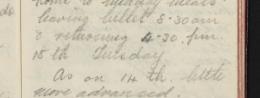 home to Tuesday meals
leaving billet 8-30 am
& returning 4-30. p.m.
15 th Tuesday
As on 14 th. little
more advanced.